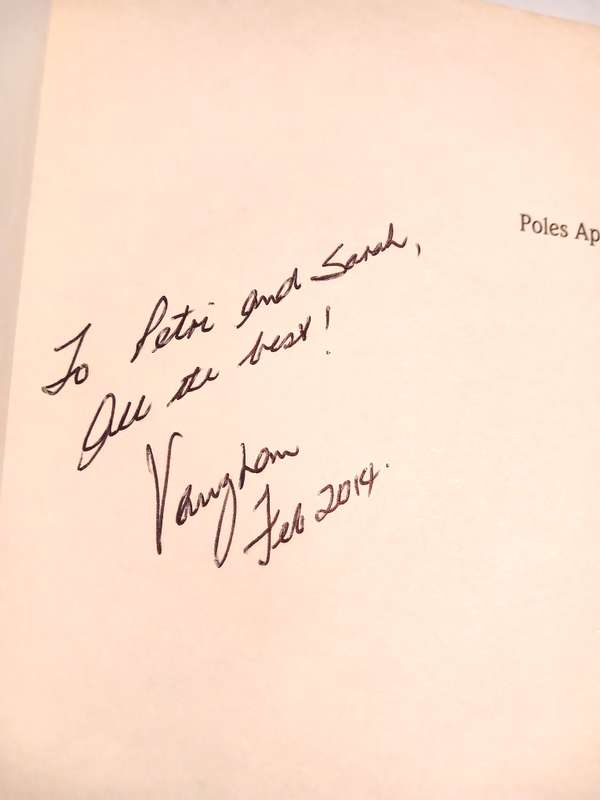 Poles Ap
To Petri and Sarah,
All the best!
Vaughan
Feb 2014.